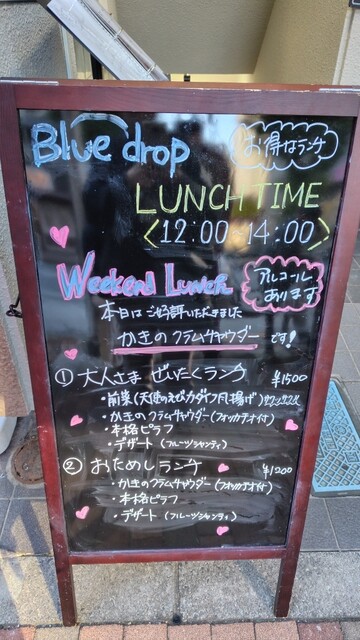 Blue drop
お得なランチ
LUNCH TIME
<12:00-14:00>
Weekend Luner
アルコール
あります
本日はご好評いただきました
かきのクラムチャウダー です!
① 大人さま ぜいたくランチ ¥1500
・前菜(天使のえびカダイフ風揚げ)サクッサクッス
・かきのクラムチャウダー(フォカッチャオイ付)
・本格ピラフ
・デザート(フルーツシャンティ)
② おためしランチ ¥1200
・かきのクラムチャウダー(フォカッチャオイ付)
・本格ピラフ
・デザート(フルーツシャンティ)